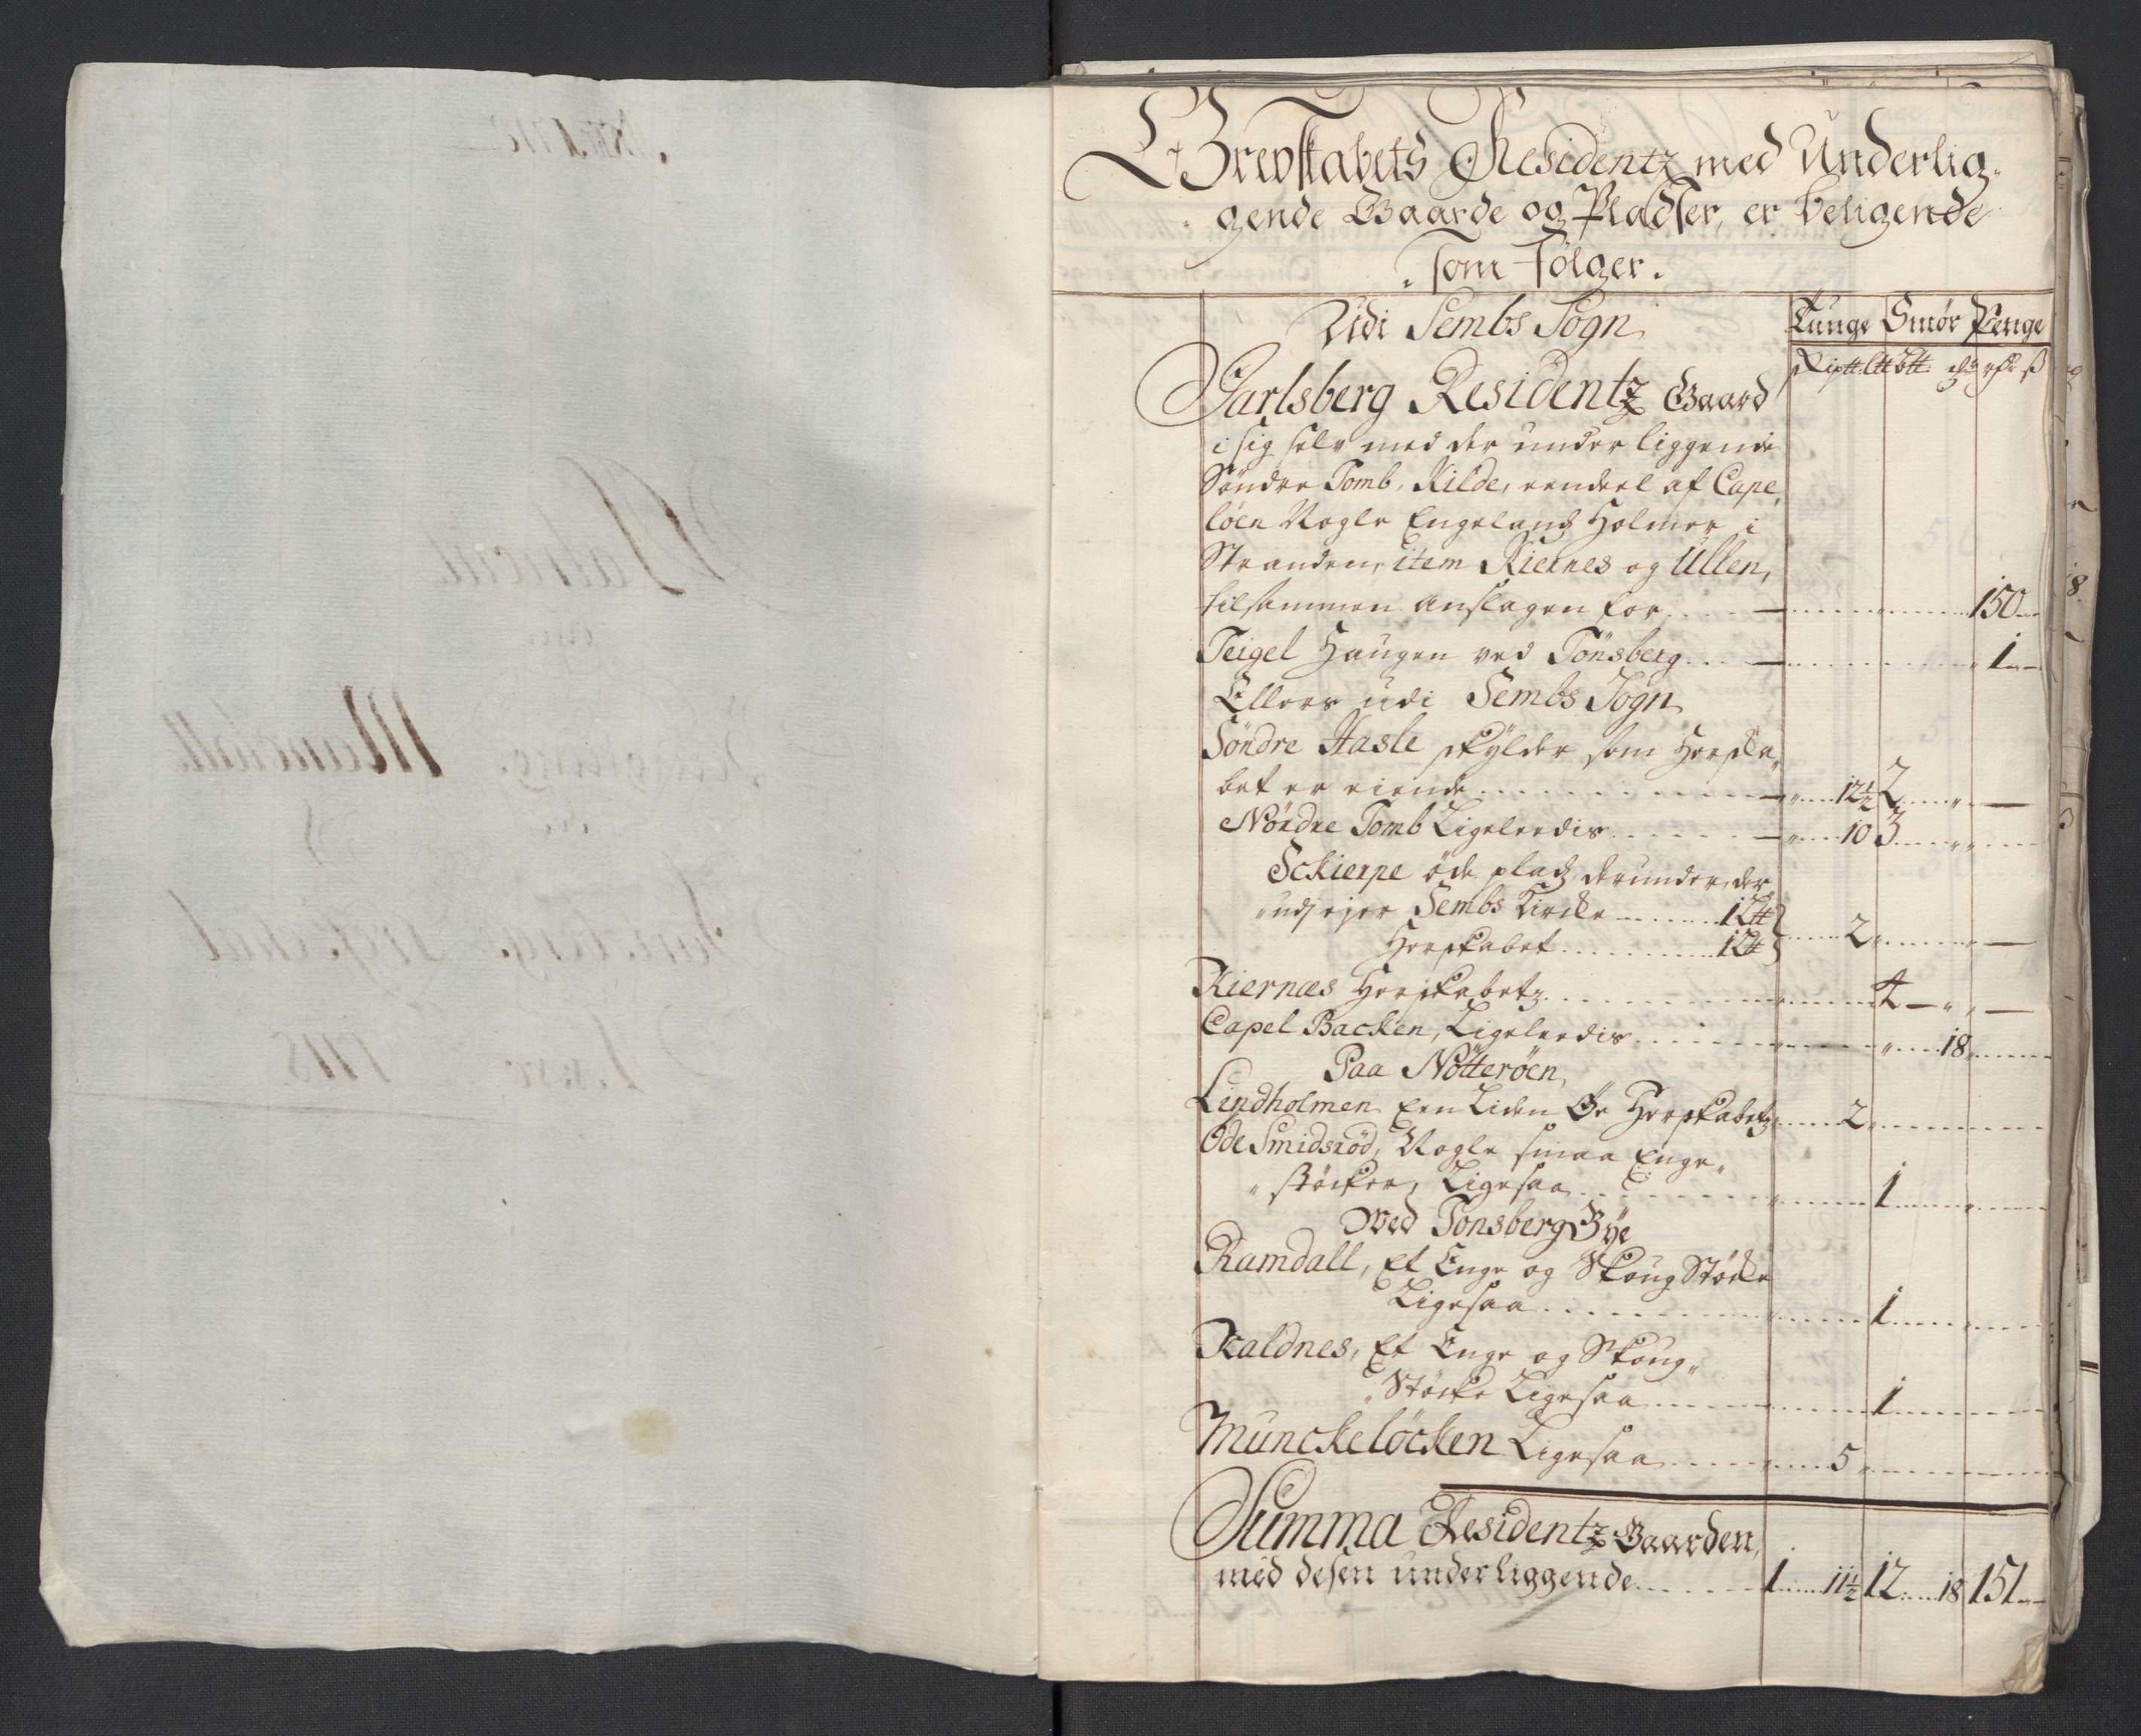 Grevskabets Residentz med Underlig-
gende Gaarde og Pladser, er beligende
som Fölger.
Udi Sembs Sogn
Tunge Smör Penge
Jarlsberg Residentz Gaard
i sig selv med der under liggende
Söndre Tomb, Kilde, eendeel af Cape,
löen Nogle Engelandz Holmer i
Stranden, item Kiernes og Ullen,
tilsammen anslagen for 150
Teigel Haugen ved Tönsberg 1
Ellers udi Sembs Sogn
Söndre Hasle skylder som Herska,,
bet er eiende 12½ 2
Nördre Tomb Ligeleedis 10 3
Sckierpe öde pladz derunder, der
udj ejer Sembs Kircke 1 L℔
Herskabet 1 L℔ 2
Kiernæs Herskabetz 4
Capel Backen, Ligeleedis 18
Paa Nötteröen
Lindholmen Een Liden Öe Herskabetz 2
Öde Smidsröd, Nogle smaa Enge,,
,,støcker, Ligesaa 1
Ved Tonsberg Bÿe
Ramdall, Et Enge og Skoug Støcke
Ligesaa 1
Kaldnes, Et Enge og Skoug,,
,,Støcke Ligesaa 1
Munckelöcken Ligesaa 5
Summa Residentz Gaarden,
med desen underliggende 1 11½ 12 18 151